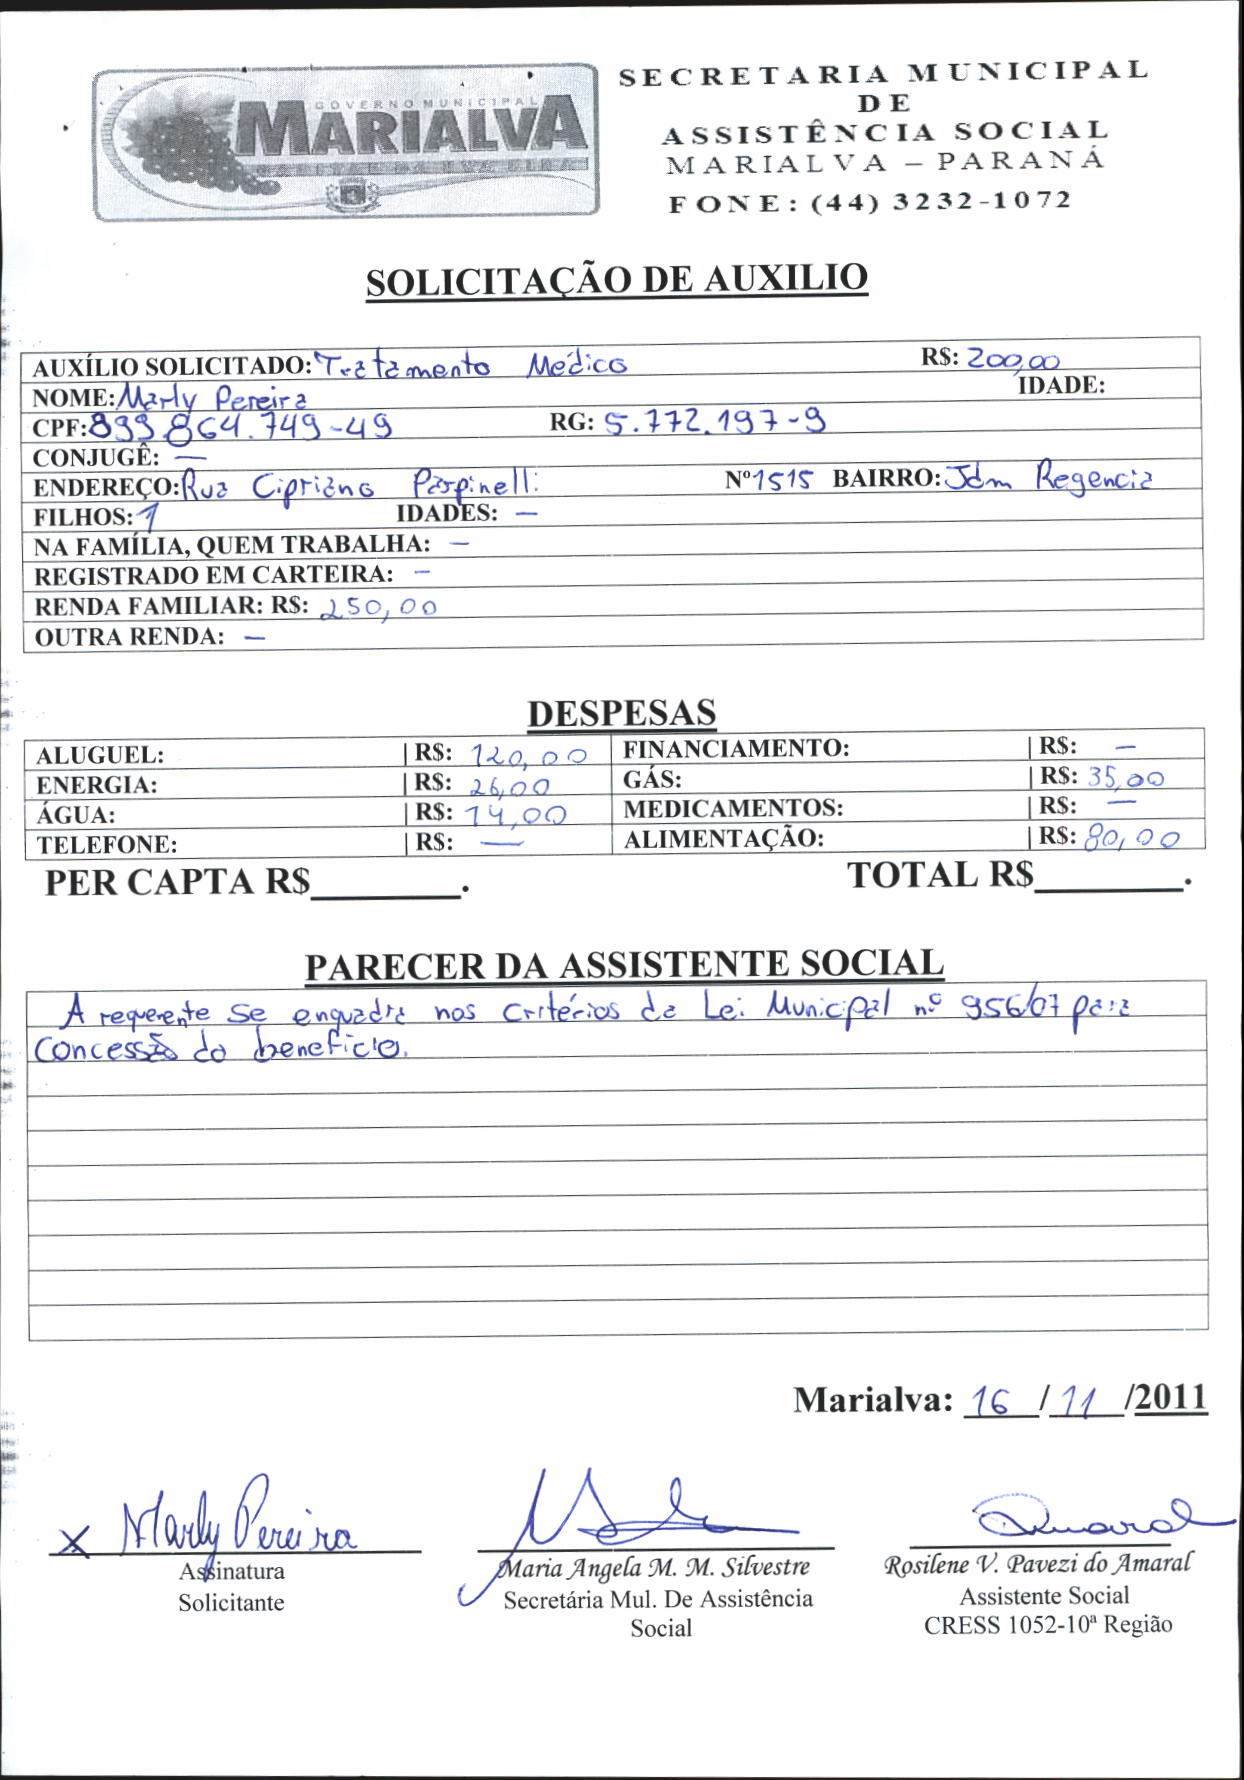 GOVERNO MUNICIPAL
MARIALVA
SECRETARIA MUNICIPAL
DE
ASSISTÊNCIA SOCIAL
MARIALVA – PARANÁ
FONE: (44) 3232-1072
SOLICITAÇÃO DE AUXILIO
AUXÍLIO SOLICITADO: Tratamento Médico R$: 200,00
NOME: Marly Pereira IDADE:
CPF: 899.864.749-49 RG: 5.772.197-9
CONJUGÊ: —
ENDEREÇO: Rua Cipriano Parpinelli Nº 1515 BAIRRO: Jdm Regencia
FILHOS: 1 IDADES: —
NA FAMÍLIA, QUEM TRABALHA: —
REGISTRADO EM CARTEIRA: —
RENDA FAMILIAR: R$: 250,00
OUTRA RENDA: —
DESPESAS
ALUGUEL: | R$: 120,00 FINANCIAMENTO: | R$: —
ENERGIA: | R$: 26,00 GÁS: | R$: 35,00
ÁGUA: | R$: 14,00 MEDICAMENTOS: | R$: —
TELEFONE: | R$: — ALIMENTAÇÃO: | R$: 80,00
PER CAPTA R$________. TOTAL R$________.
PARECER DA ASSISTENTE SOCIAL
A requerente se enquadra nos critérios da Lei Municipal nº 956/07 para
concessão do benefício.
Marialva: 16 / 11 /2011
X Marly Pereira
Assinatura
Solicitante
Maria Angela M. M. Silvestre
Secretária Mul. De Assistência
Social
Rosilene V. Pavezi do Amaral
Assistente Social
CRESS 1052-10ª Região